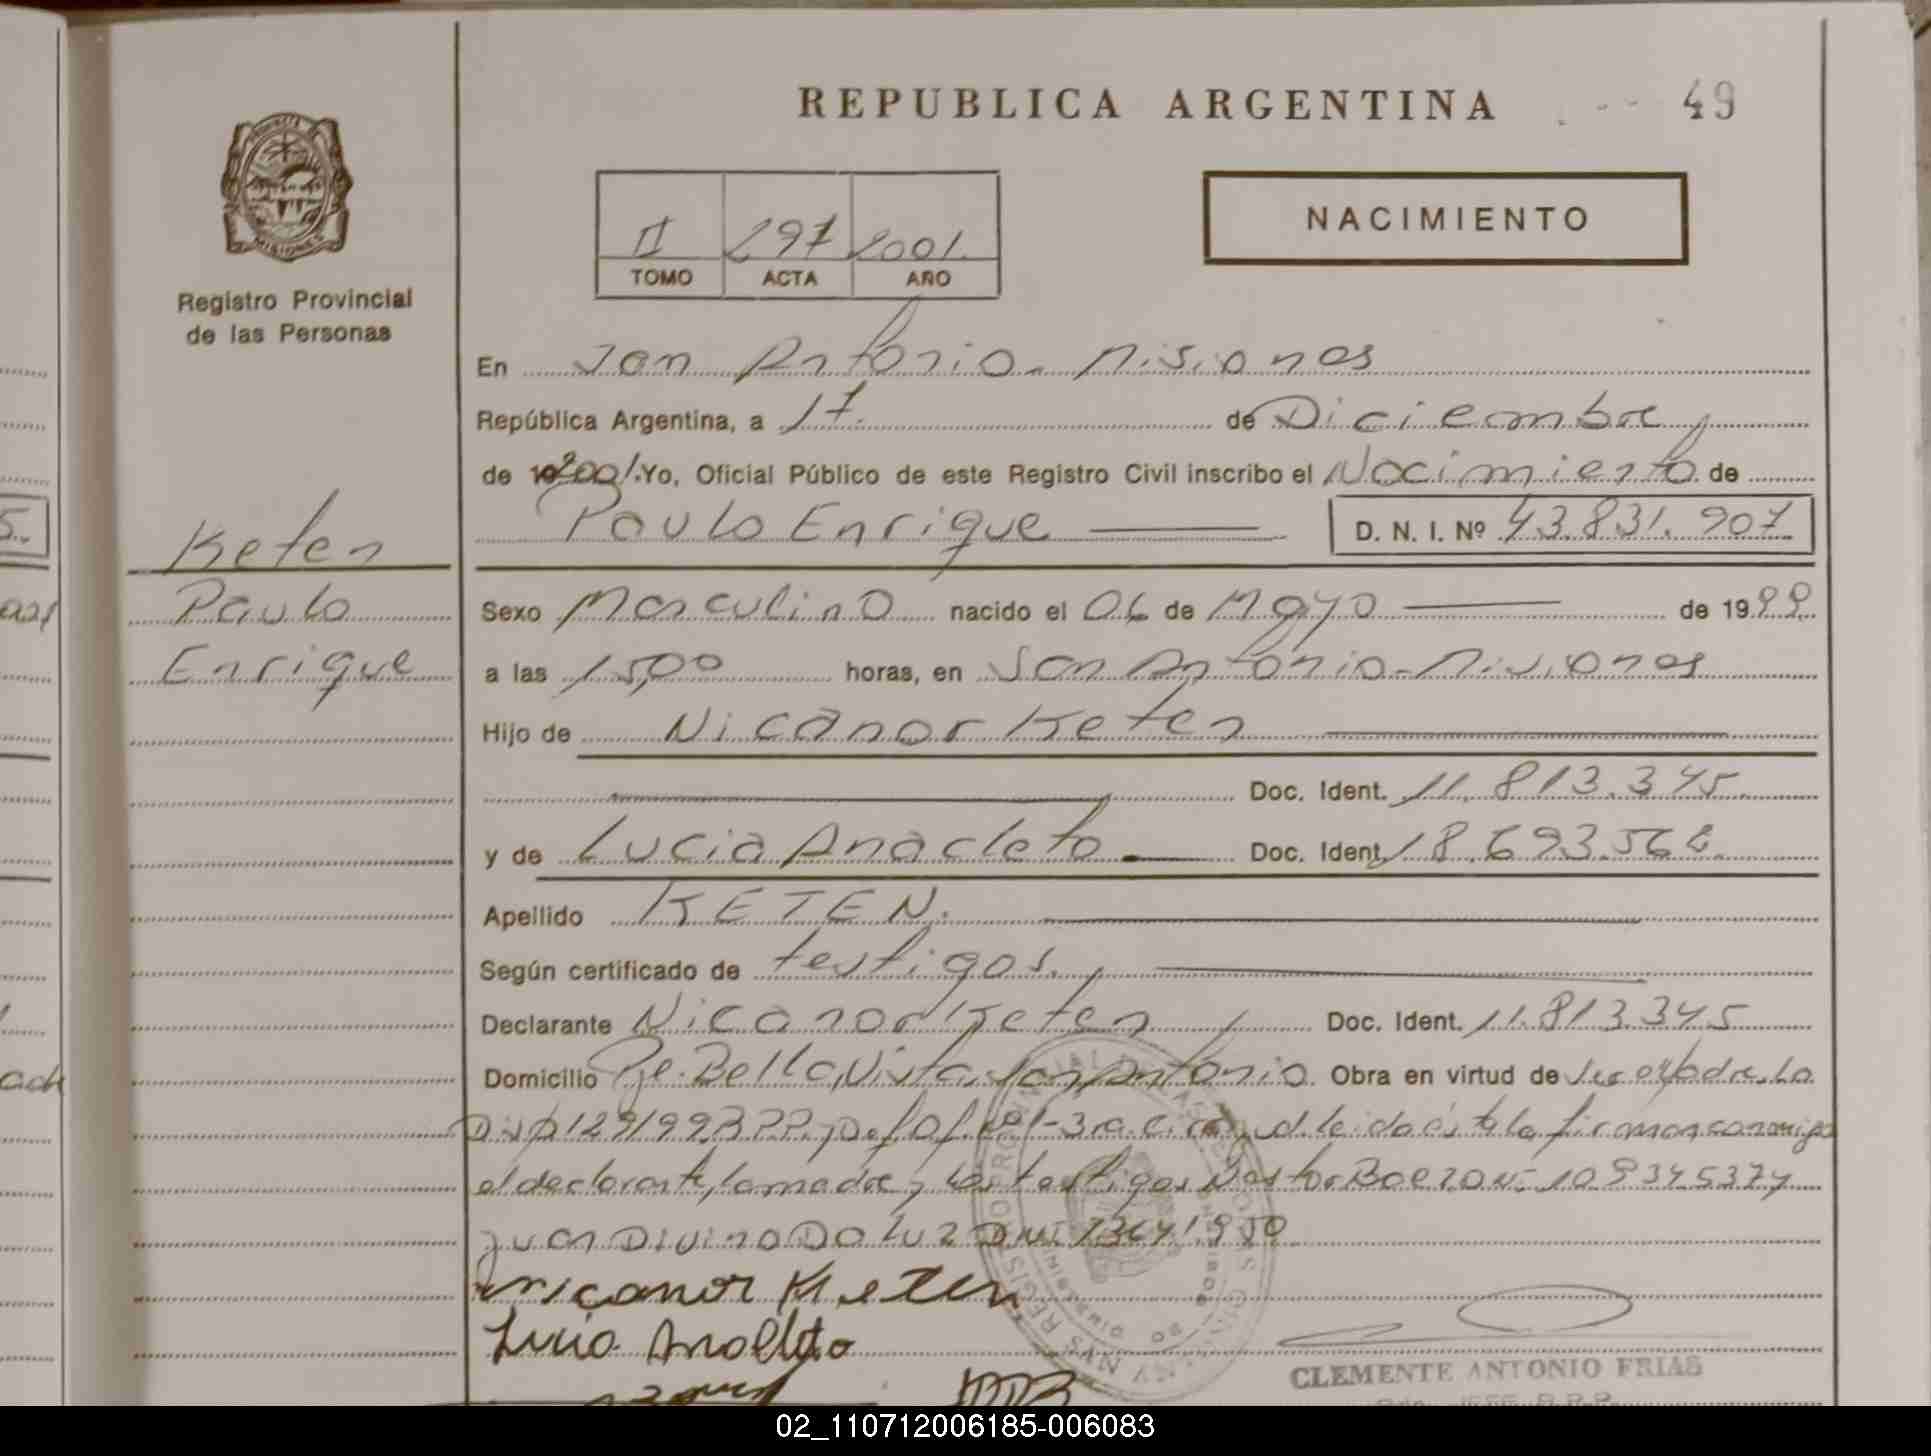 REPUBLICA ARGENTINA
49
PROVINCIA DE
MISIONES
Registro Provincial
de las Personas
II 297 2001.
TOMO ACTA AÑO
NACIMIENTO
En San Antonio - Misiones
República Argentina, a 17. de Diciembre
de 19 2001. Yo, Oficial Público de este Registro Civil inscribo el Nacimiento de
Paulo Enrique D. N. I. Nº 43.831.907
Keten
Paulo
Enrique
Sexo Masculino nacido el 06 de Mayo de 1999.
a las 15,00 horas, en San Antonio - Misiones
Hijo de Nicanor Keten
Doc. Ident. 11.813.345.
y de Lucia Anacleto Doc. Ident. 18.693.568.
Apellido KETEN.
Según certificado de testigos.
Declarante Nicanor Keten Doc. Ident. 11.813.345
Domicilio Pje. Bella Vista, San Antonio. Obra en virtud de ser el padre. La
Disp 129/99 leida ésta la firman conmigo
el declarante, la madre y los testigos Nestor
Juan Divino Da Luz DNI
Nicanor Keten
Lucia Anacleto
CLEMENTE ANTONIO FRIAS
02_110712006185-006083